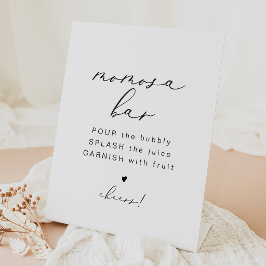 momosa
bar
POUR the bubbly
SPLASH the juice
GARNISH with fruit
cheers!